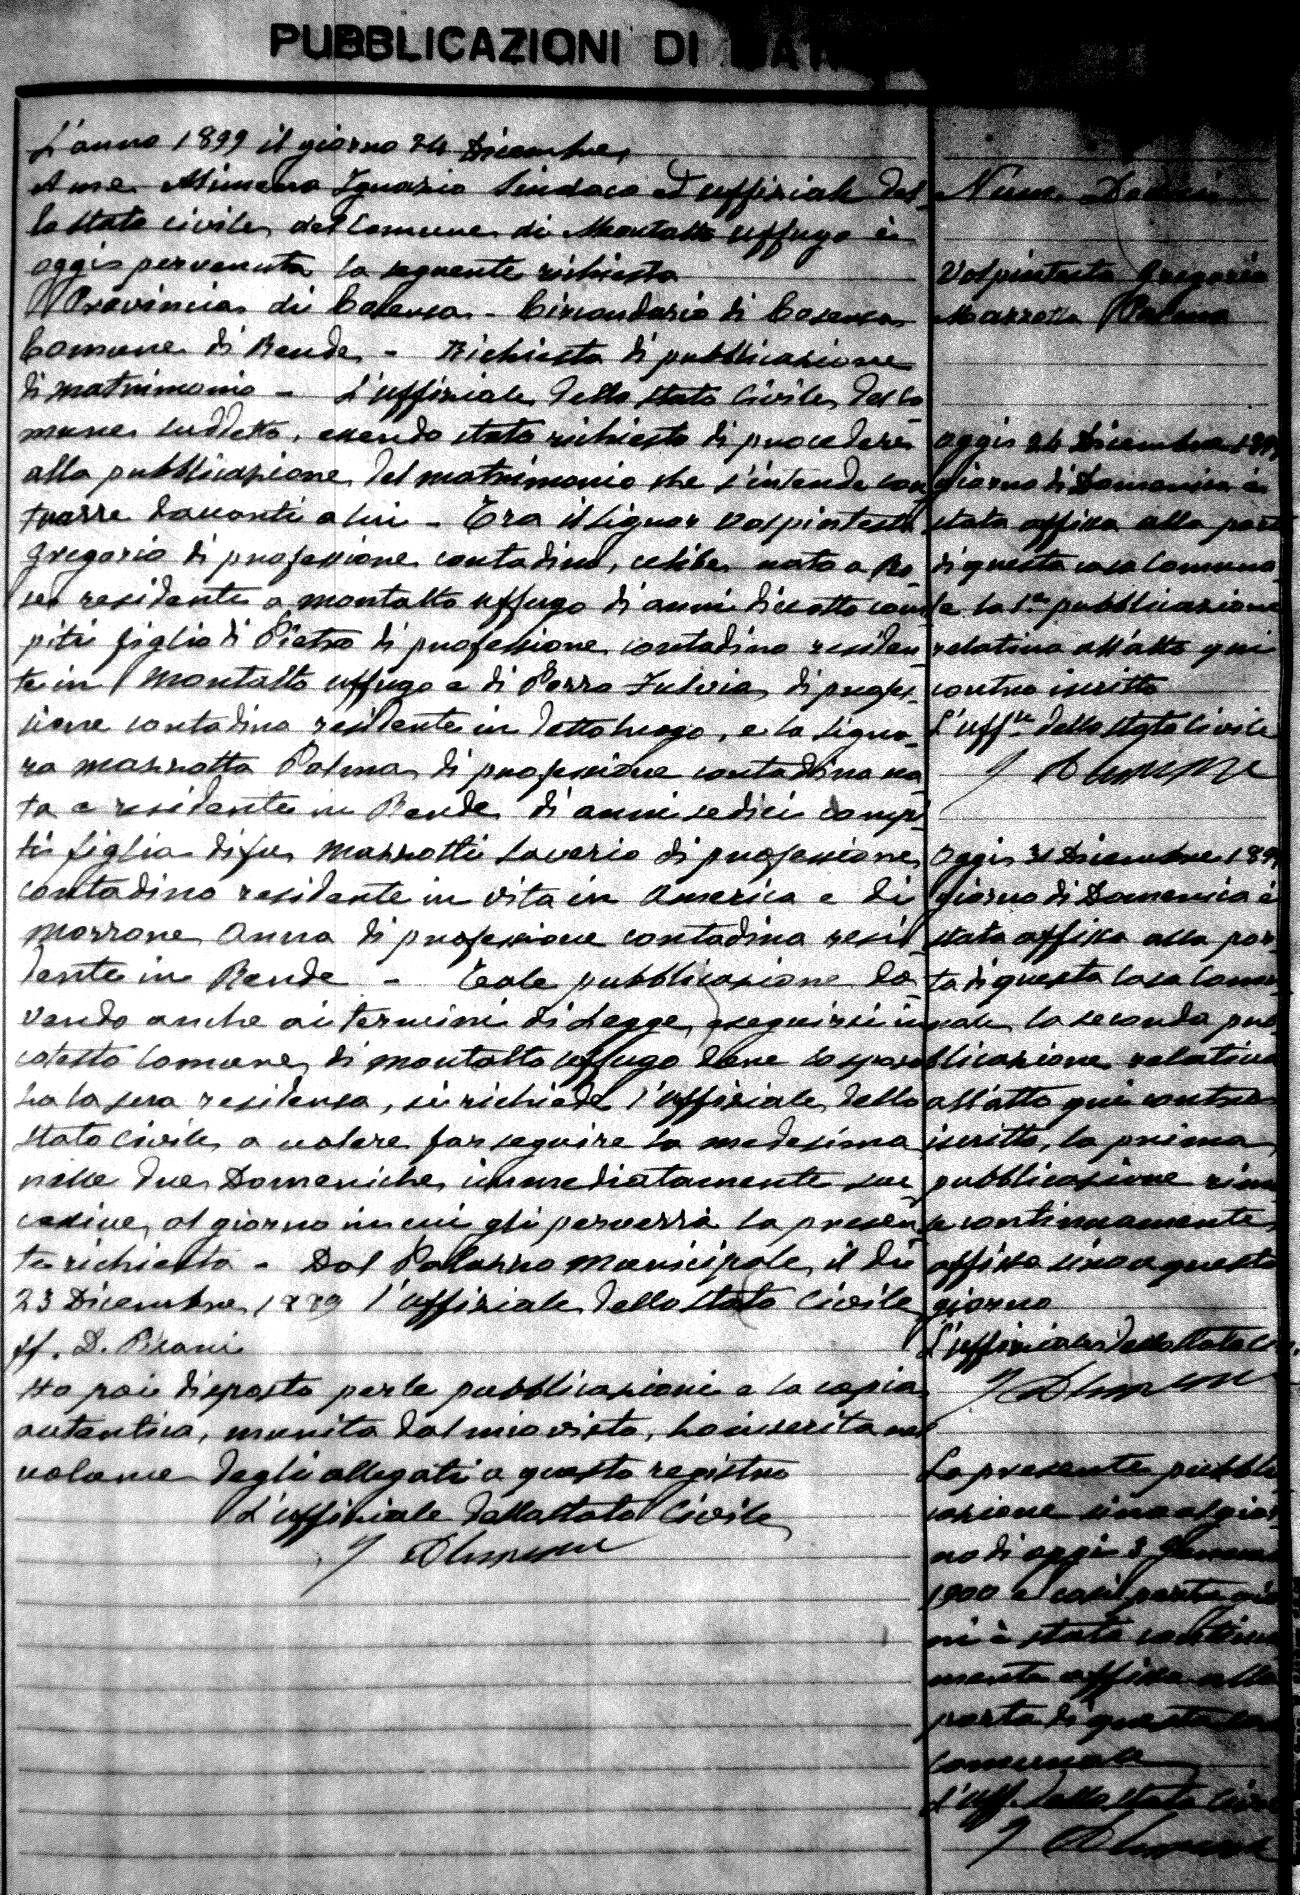 PUBBLICAZIONI DI MAT
L'anno 1899 il giorno 24 Dicembre,
A me Alimena Ignazio Sindaco ed uffiziale del-
lo stato civile del Comune di Montalto Uffugo è
oggi pervenuta la seguente richiesta
Provincia di Cosenza - Circondario di Cosenza
Comune di Rende - Richiesta di pubblicazione
di matrimonio - L'uffiziale dello stato Civile del Co-
mune suddetto, essendo stato richiesto di procedere
alla pubblicazione del matrimonio che s'intende con
trarre davanti a lui - Tra il Signor Volpintesta
Gregorio di professione contadino, celibe nato a Ro-
se, residente a Montalto Uffugo di anni diciotto com
piti figlio di Pietro di professione contadino residen
te in Montalto Uffugo e di Perra Fulvia di profes-
sione contadina residente in detto luogo, e la Signo-
ra Mazzotta Palma di professione contadina na
ta e residente in Rende di anni sedici compi
ti figlia di fu Mazzotti Saverio di professione
contadino residente in vita in America e di
Morrone Anna di professione contadina resi-
dente in Rende - Tale pubblicazione do-
vendo anche ai termini di Legge, eseguirsi in
cotesto Comune di Montalto Uffugo dove lo sposo
ha la sua residenza, si richiede l'uffiziale dello
Stato Civile a volere far seguire la medesima
nelle due Domeniche immediatamente suc
cessive al giorno in cui gli perverrà la presen
te richiesta - Dal Palazzo Municipale, il dì
23 Dicembre 1899 l'uffiziale dello stato Civile
ff. D.
Ho poi disposto per le pubblicazioni e la copia
autentica, munita dal mio visto, ho inserita nel
volume degli allegati a questo registro
L'uffiziale dello stato Civile
I Alimena
Num.
Volpintesta Gregorio
Mazzotta Palma
Oggi 24 Dicembre 1899
giorno di Domenica è
stata affissa alla porta
di questa casa Comuna-
le la 1.a pubblicazione
relativa all'atto qui
contro iscritto
L'uff.le dello stato Civile
I Alimena
Oggi 31 Dicembre 1899
giorno di Domenica è
stata affissa alla por-
ta di questa casa Comu-
nale la seconda pub
blicazione relativa
all'atto qui contro
iscritto, la prima
pubblicazione rima
se continuamente
affissa sino a questo
giorno
L'uffiziale dello Stato Civ.
I Alimena
La presente pubbli
cazione sino al gior-
no di oggi 3 Gennaio
1900 e così per tre gior
ni è stata continua
mente affissa alla
porta di questa Casa
comunale
L'uff. dello stato Civile
I Alimena